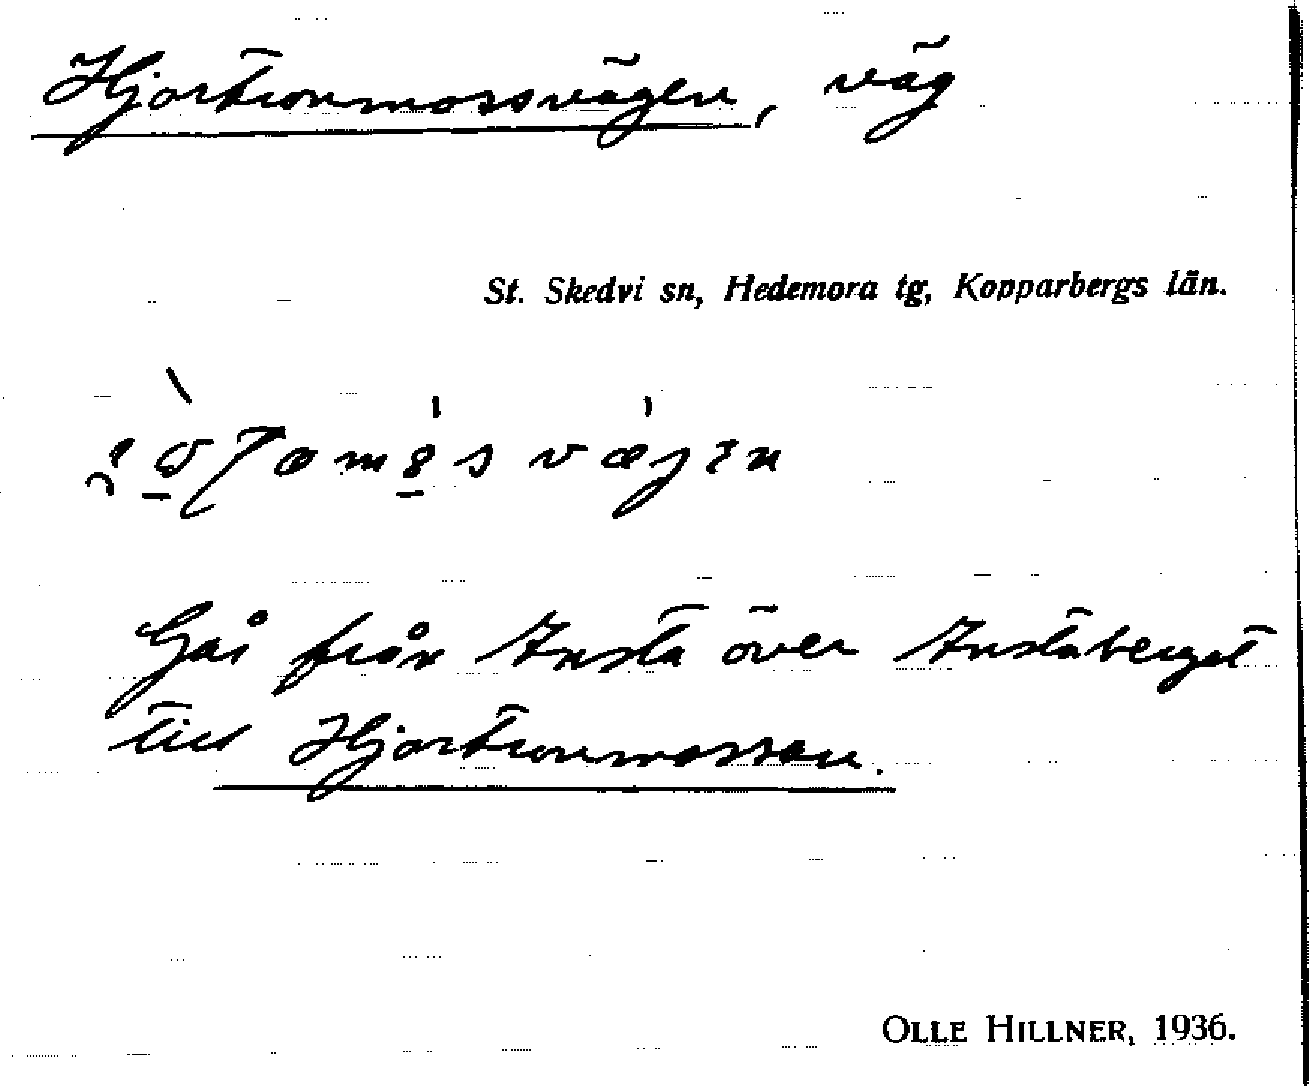 Hjortronmossvägen, väg
St. Skedvi sn, Hedemora tg, Kopparbergs län.
Går från Insta över Instaberget
till Hjortronmossen.
OLLE HILLNER, 1936.